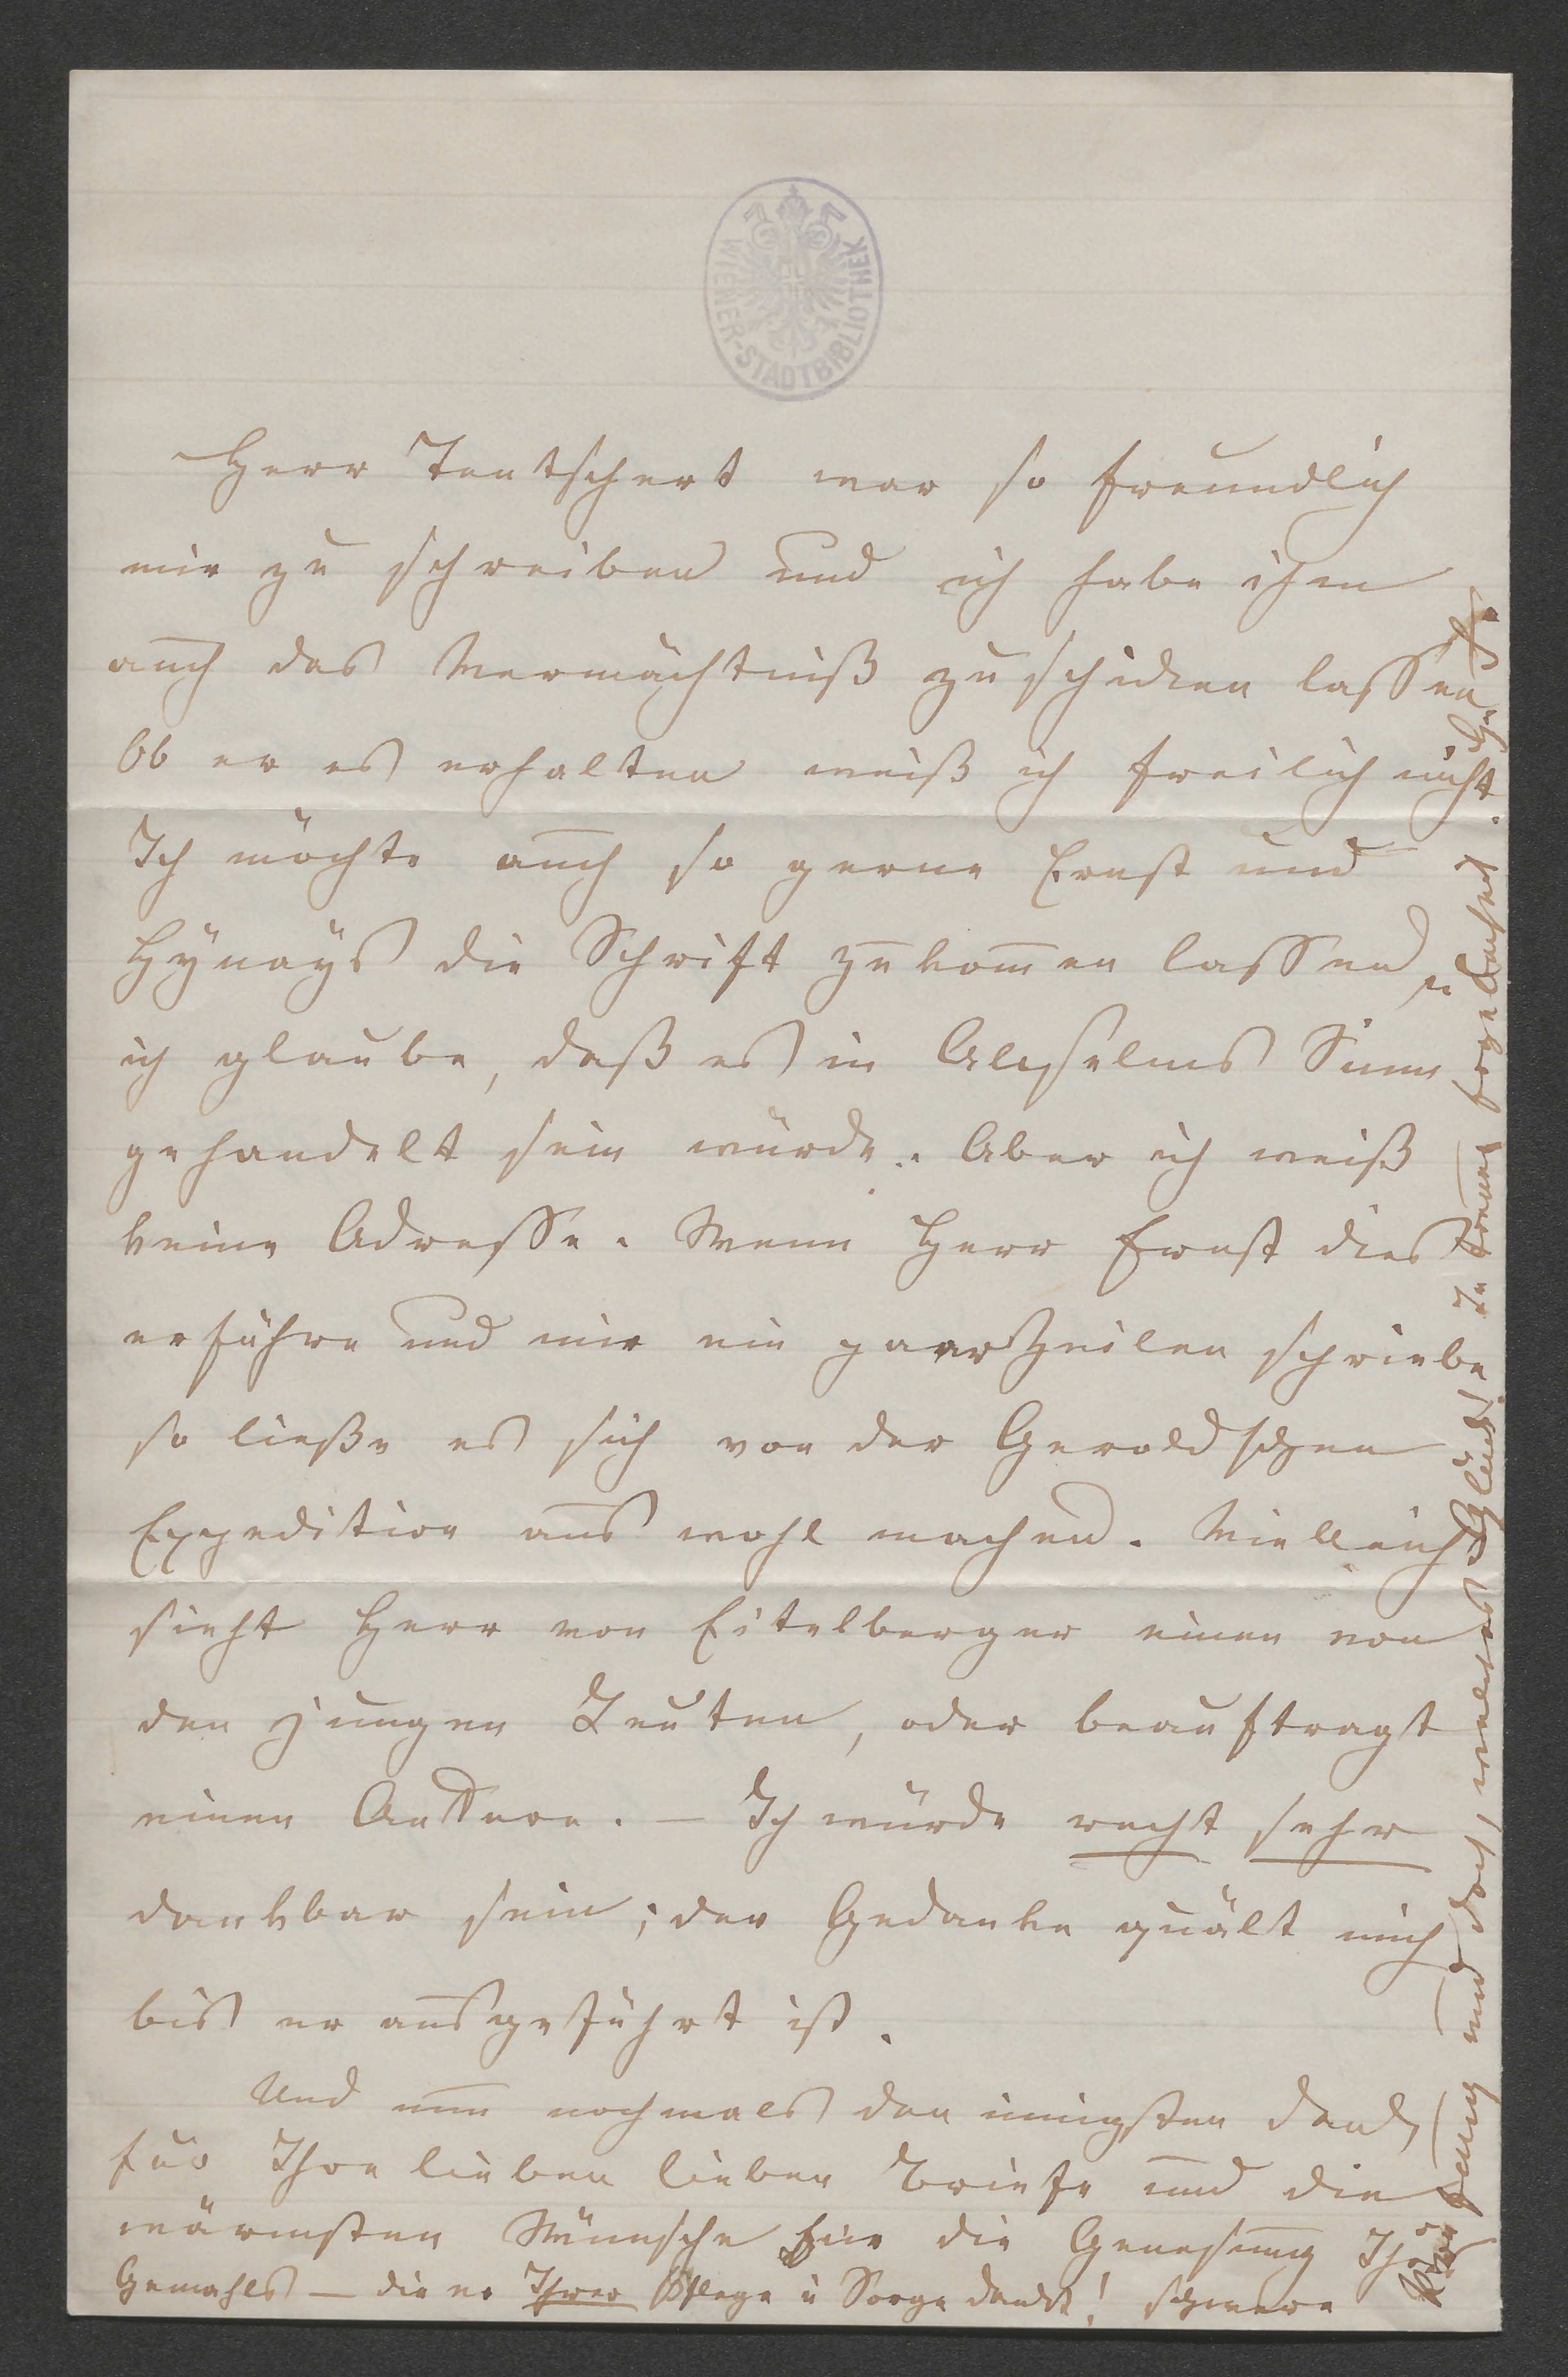 WIENER-STADTBIBLIOTHEK
Herr Teutschert war so freundlich
mir zu schreiben und ich habe ihm
auch das Vermächtniß zuschicken lassen
Ob er es erhalten weiß ich freilich nicht.
Ich möchte auch so gerne Ernst und
Hynays die Schrift zukom̅en lassen u
ich glaube, daß es in Anselms Sinn
gehandelt sein würde. Aber ich weiß
keine Adresse. Wenn Herr Ernst dies
erführe und mir ein paar Zeilen schriebe
so ließe es sich von der Geroldschen
Expedition aus wohl machen. Vielleicht
sieht Herr von Eitelberger einen von
den jungen Leuten, oder beauftragt
einen Andern. — Ich würde recht sehr
dankbar sein; der Gedanke quält mich
bis er ausgeführt ist.
Und nun nochmals den innigsten Dank
für Ihre lieben lieben Briefe und die
wärmsten Wünsche für die Genesung Ihres
Gemahls — die er Ihrer Pflege u Sorge dankt! schwere
und doch, welches Glück! In treuer Ergebenheit